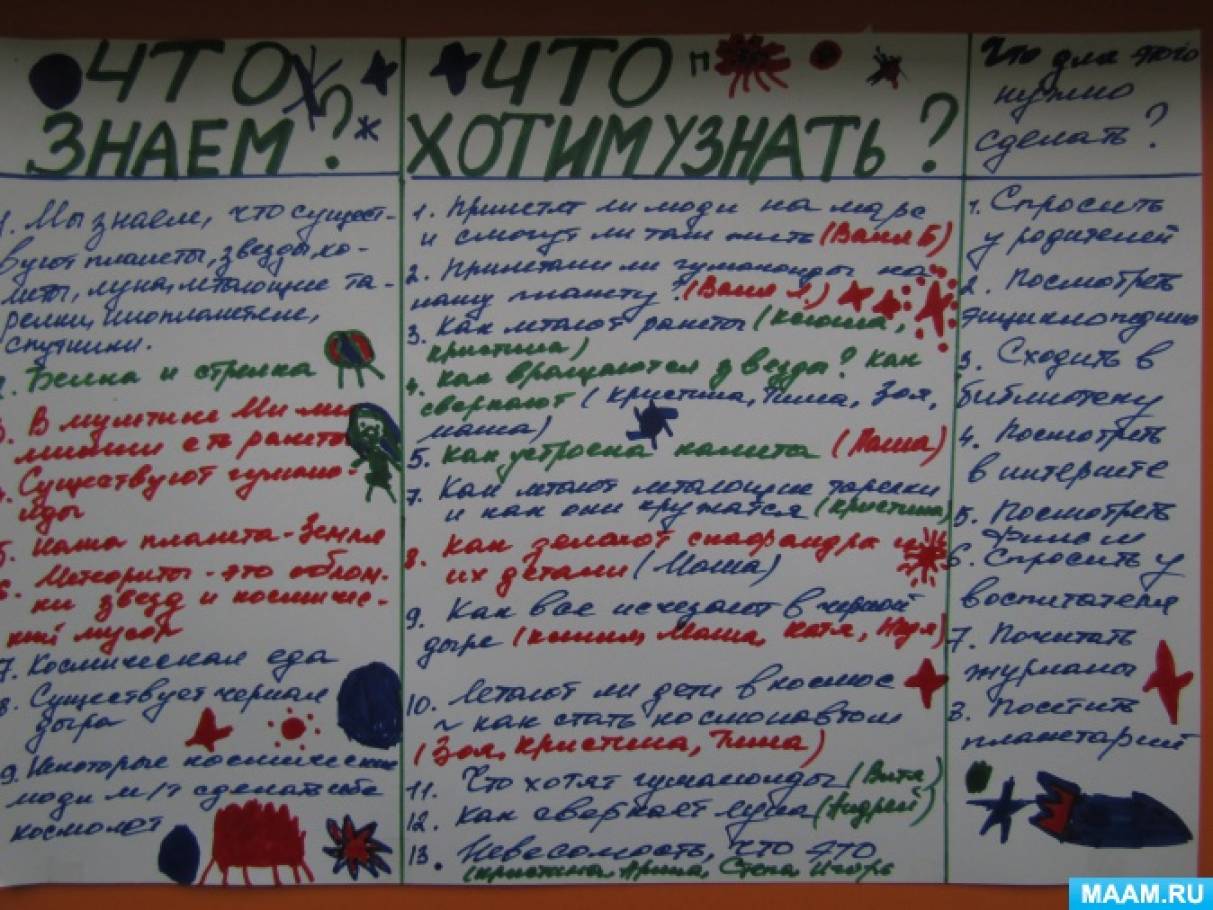 ЧТО
ЗНАЕМ?
1. Мы знаем, что сущест-
вуют планеты, звезды, ко-
меты, луна, летающие та-
релки, инопланетяне,
спутники.
2. Белка и стрелка
3. В мультике Ми ми
мишки есть ракета
4. Существуют гумано-
иды
5. Наша планета - Земля
6. Метеориты - это облом-
ки звезд и космичес-
кий мусор
7. Космическая еда
8. Существует черная
дыра
9. Некоторые космические
люди м/т сделать себе
космолет
ЧТО
ХОТИМ УЗНАТЬ?
1. Прилетят ли люди на марс
и смогут ли там жить (Ваня Б)
2. Прилетали ли гуманоиды на
нашу планету? (Ваня Л.)
3. Как летают ракеты (Ксюша,
кристина)
4. Как вращаются звезды? Как
сверкают (кристина, Тима, Зоя,
маша)
5. Как устроена комета (Паша)
7. Как летают летающие тарелки
и как они кружатся (кристина)
8. Как делают скафандры и
их детали (Маша)
9. Как все исчезают в черной
дыре (Маша, Катя, Надя)
10. Летают ли дети в космос
и как стать космонавтом
(Зоя, кристина, Тима)
11. Что хотят гуманоиды (Витя)
12. Как сверкает луна (Андрей)
13. Невесомость, что это
(кристина, Арина, Степа, Игорь
Что для этого
нужно
сделать?
1. Спросить
у родителей
2. Посмотреть
энциклопедию
3. Сходить в
библиотеку
4. Посмотреть
в интернете
5. Посмотреть
фильм
6. Спросить у
воспитателя
7. Почитать
журналы
8. Посетить
планетарий
MAAM.RU